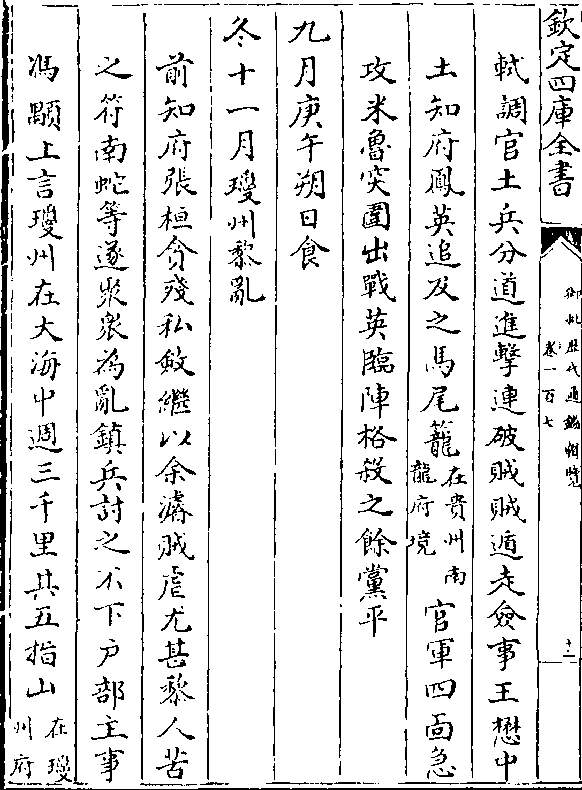 欽定四庫全書
御批歷代通鑑輯覽
卷一百七
十一
軾調官土兵分道進擊連破賊賊遁走僉事王懋中
土知府鳳英追及之馬尾籠在貴州南龍府境官軍四面急
攻米魯突圍出戰英臨陣格殺之餘黨平
九月庚午朔日食
冬十一月瓊州黎亂
前知府張桓貪殘私斂繼以余濬賊虐尤甚黎人苦
之符南蛇等遂聚衆為亂鎮兵討之不下戶部主事
馮顒上言瓊州在大海中週三千里其五指山在瓊州府